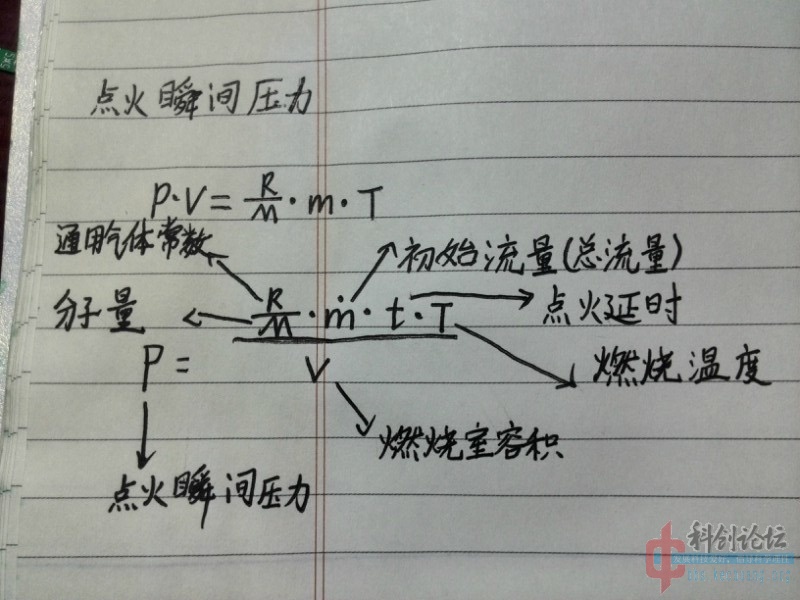 点火瞬间压力
P·V=R/M·m·T
通用气体常数
初始流量(总流量)
分子量
R/M·ṁ·t·T
点火延时
P=
V
燃烧温度
燃烧室容积
点火瞬间压力
科创论坛